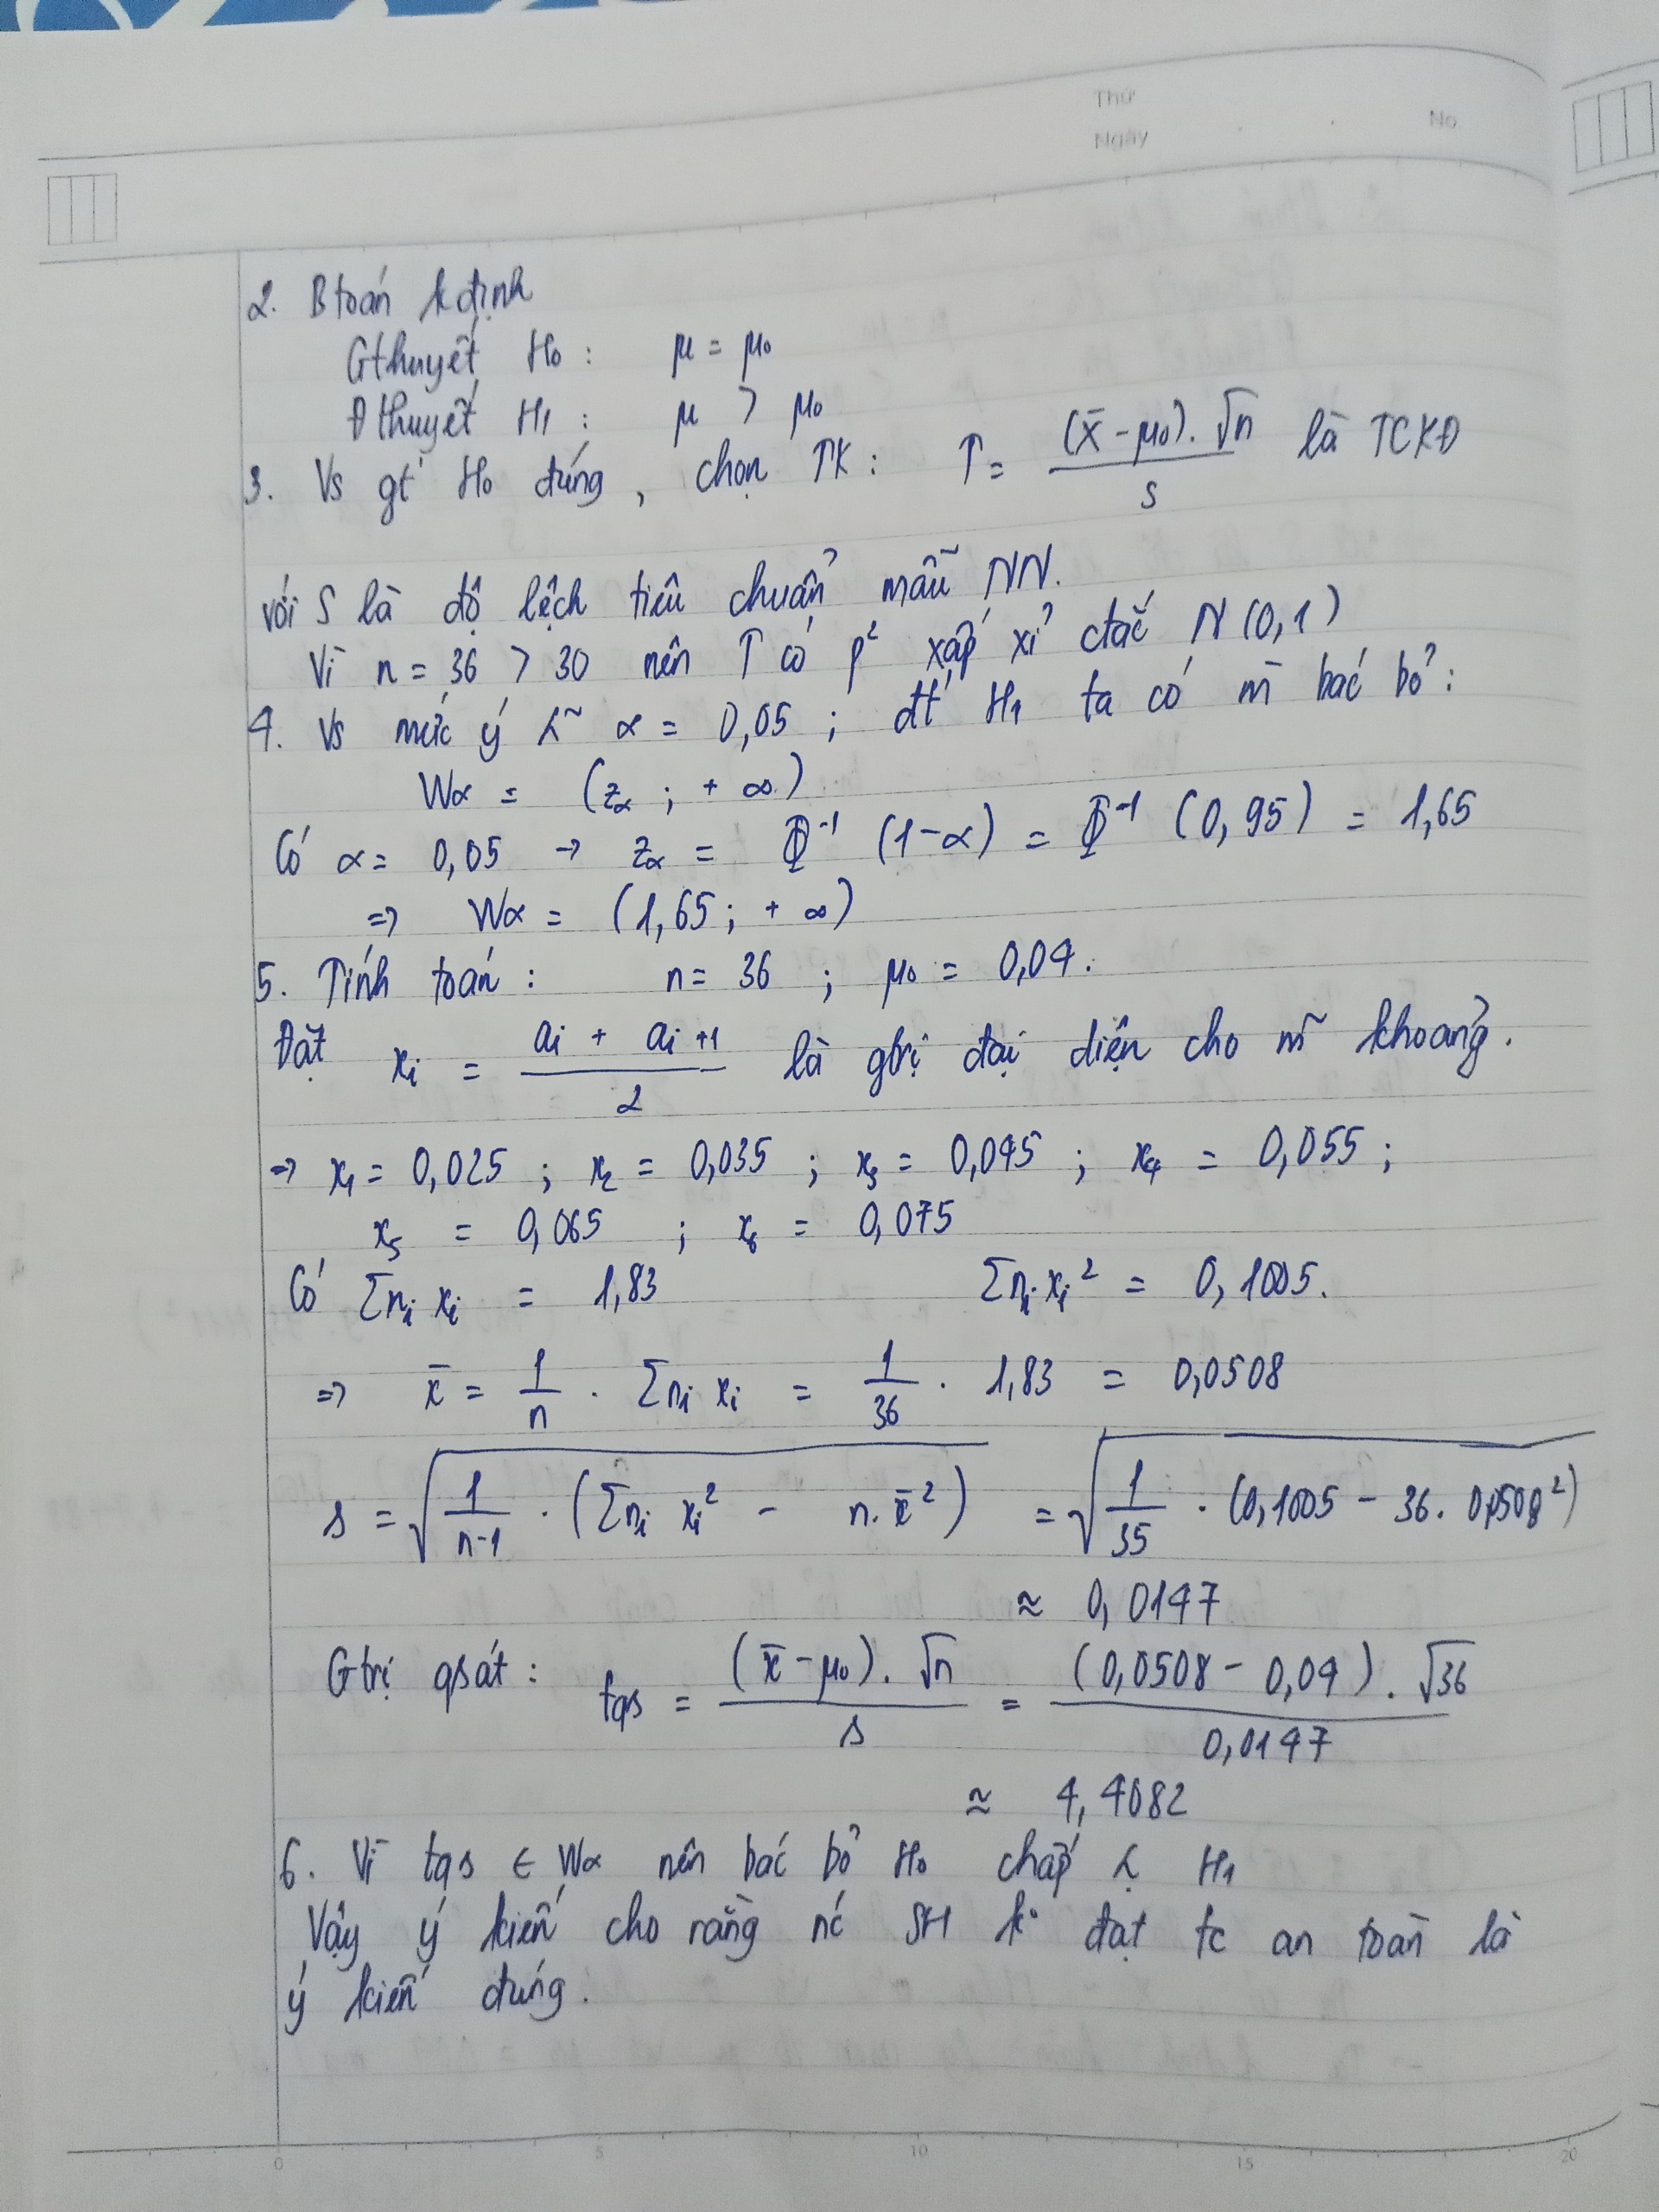 Thứ
Ngày
No.
2. Btoán kđịnh
Gthuyết H₀ : μ = μ₀
Đthuyết H₁ : μ > μ₀
3. Vs gt H₀ đúng, chọn TK: T = (x̄ - μ₀).√n / S là TCKĐ
với S là độ lệch tiêu chuẩn mẫu NN.
Vì n = 36 > 30 nên T có p² xấp xỉ ctắc N(0,1)
4. Vs mức ý λ~ α = 0,05 ; đt H₁ ta có m bác bỏ :
Wα = (zα ; + ∞)
Có α = 0,05 → zα = Φ⁻¹ (1-α) = Φ⁻¹ (0,95) = 1,65
=> Wα = (1,65 ; + ∞)
5. Tính toán : n = 36 ; μ₀ = 0,04.
Đặt xᵢ = (aᵢ + aᵢ+1) / 2 là gtrị đại diện cho m~ khoảng.
=> x₁ = 0,025 ; x₂ = 0,035 ; x₃ = 0,045 ; x₄ = 0,055 ;
x₅ = 0,065 ; x₆ = 0,075
Có Σnᵢ xᵢ = 1,83 Σnᵢ.xᵢ² = 0,1005.
=> x̄ = 1/n . Σnᵢ xᵢ = 1/36 . 1,83 = 0,0508
s = √(1/(n-1) . (Σnᵢ xᵢ² - n.x̄²)) = √(1/35 . (0,1005 - 36. 0,0508²))
≈ 0,0147
Gtrị qsát : tqs = (x̄ - μ₀).√n / s = (0,0508 - 0,04).√36 / 0,0147
≈ 4,4082
6. Vì tqs ∈ Wα nên bác bỏ H₀ chấp λ. H₁
Vậy ý kiến cho rằng nc SH k° đạt tc an toàn là
ý kiến đúng.
0 5 10 15 20